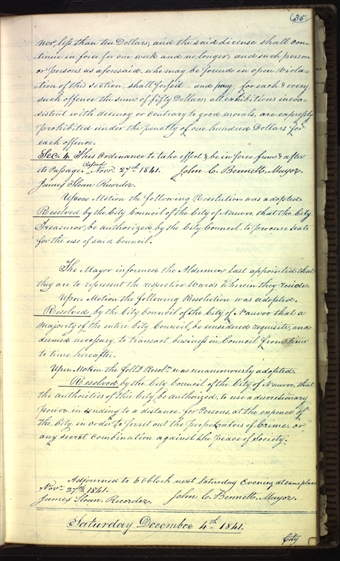 35
nor less than ten Dollars, and the said license shall con-
tinue in force for one week and no longer, and such person
or persons as aforesaid, who may be found in open viola-
tion of this section, shall forfeit and pay, for each & every
such offence the sum of fifty Dollars; all exhibitions incon-
sistent with decency or contrary to good morals, are expressly
prohibited under the penalty of one hundred Dollars for
each offence.
Sec. 4. This Ordinance to take effect & be in force from & after
its Passage. Passed Novr. 27th 1841. John C. Bennett, Mayor.
James Sloan Recorder.
Upon Motion the following Resolution was adopted.
Resolved by the City Council of the City of Nauvoo, that the City
Treasurer, be authorized by the City Council, to procure seats
for the use of said Council.
The Mayor informed the Aldermen last appointed, that
they are to represent the respective Wards wherein they reside.
Upon Motion the following Resolution was adopted.
Resolved, by the City Council of the City of Nauvoo that a
majority of the entire City Council, be considered requisite, and
deemed necessary to transact business in Council from time
to time hereafter.
Upon Motion the follg. Resoln. was unanimously adopted.
Resolved, by the City Council of the City of Nauvoo, that
the authorities of this City be authorized, to use a discretionary
power, in sending to a distance for Persons, at the expence of
the City, in order to ferret out the Perpetrators of Crime, or
any secret Combination against the peace of Society.
Adjourned to 6 oClock next Saturday Evening at same place
Novr. 27th 1841.
James Sloan, Recorder. John C. Bennett, Mayor.
Saturday December 4th 1841.
City